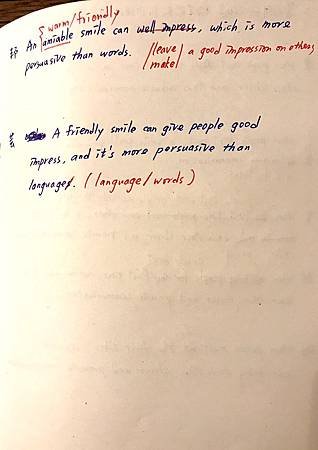 { warm/friendly
An amiable smile can well impress, which is more
persuasive than words. {leave/make} a good impression on others
A friendly smile can give people good
impress, and it's more persuasive than
languages. (language/words)